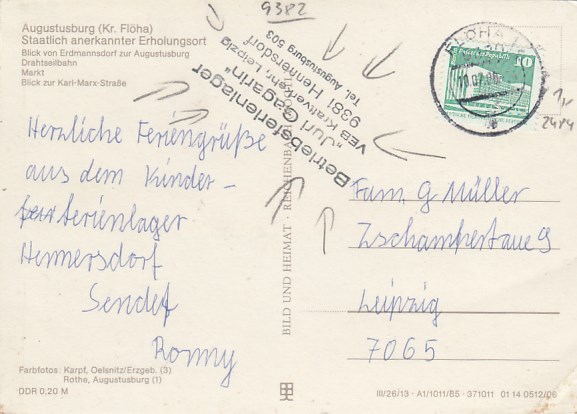 Augustusburg (Kr. Flöha)
Staatlich anerkannter Erholungsort
Blick von Erdmannsdorf zur Augustusburg
Drahtseilbahn
Markt
Blick zur Karl-Marx-Straße
9382
Betriebsferienlager
„Juri Gagarin"
VEB Kraftverkehr Leipzig
9381 Hennersdorf
Tel. Augustusburg 503
FLÖHA
10
Herzliche Feriengrüße
aus dem Kinder-
ferienlager
Hennersdorf
Sendet
Ronny
BILD UND HEIMAT · REICHENBACH
Fam. G Müller
Zschampertaue 9
Leipzig
7065
2484
Farbfotos: Karpf, Oelsnitz/Erzgeb. (3)
Rothe, Augustusburg (1)
DDR 0,20 M
III/26/13 · A1/1011/85 · 371011 01 14 0512/06